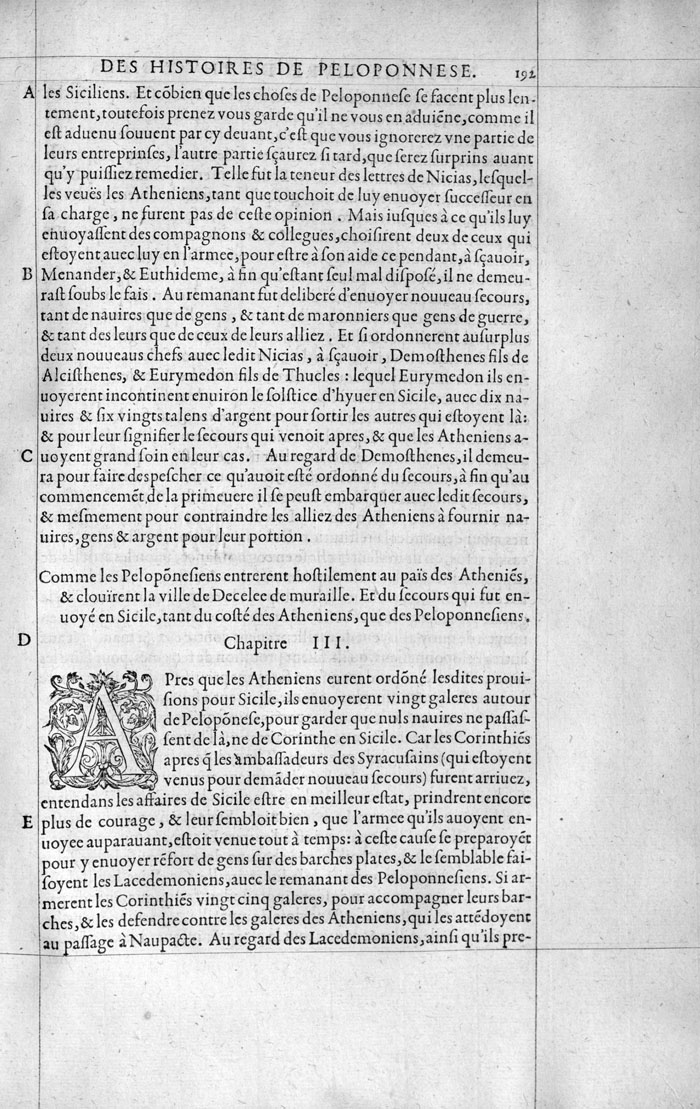 DES HISTOIRES DE PELOPONNESE. 192
A les Siciliens. Et cõbien que les choſes de Peloponneſe ſe facent plus len-
tement, toutefois prenez vous garde qu'il ne vous en aduiẽne, comme il
eſt aduenu ſouuent par cy deuant, c'eſt que vous ignorerez vne partie de
leurs entreprinſes, l'autre partie ſçaurez ſi tard, que ſerez ſurprins auant
qu'y puiſſiez remedier. Telle fut la teneur des lettres de Nicias, leſquel-
les veuës les Atheniens, tant que touchoit de luy enuoyer ſucceſſeur en
ſa charge, ne furent pas de ceſte opinion. Mais iuſques à ce qu'ils luy
enuoyaſſent des compagnons & collegues, choiſirent deux de ceux qui
eſtoyent auec luy en l'armee, pour eſtre à ſon aide ce pendant, à ſçauoir,
B Menander, & Euthideme, à fin qu'eſtant ſeul mal diſpoſé, il ne demeu-
raſt ſoubs le fais. Au remanant fut deliberé d'enuoyer nouueau ſecours,
tant de nauires que de gens, & tant de maronniers que gens de guerre,
& tant des leurs que de ceux de leurs alliez. Et ſi ordonnerent auſurplus
deux nouueaus chefs auec ledit Nicias, à ſçauoir, Demoſthenes fils de
Alciſthenes, & Eurymedon fils de Thucles : lequel Eurymedon ils en-
uoyerent incontinent enuiron le ſolſtice d'hyuer en Sicile, auec dix na-
uires & ſix vingts talens d'argent pour ſortir les autres qui eſtoyent là:
& pour leur ſignifier le ſecours qui venoit apres, & que les Atheniens a-
C uoyent grand ſoin en leur cas. Au regard de Demoſthenes, il demeu-
ra pour faire deſpeſcher ce qu'auoit eſté ordonné du ſecours, à fin qu'au
commencemẽt de la primeuere il ſe peuſt embarquer auec ledit ſecours,
& meſmement pour contraindre les alliez des Atheniens à fournir na-
uires, gens & argent pour leur portion.
Comme les Pelopõneſiens entrerent hoſtilement au païs des Atheniẽs,
& clouïrent la ville de Decelee de muraille. Et du ſecours qui fut en-
uoyé en Sicile, tant du coſté des Atheniens, que des Peloponneſiens.
D Chapitre III.
APres que les Atheniens eurent ordõné leſdites proui-
ſions pour Sicile, ils enuoyerent vingt galeres autour
de Pelopõneſe, pour garder que nuls nauires ne paſſaſ-
ſent de là, ne de Corinthe en Sicile. Car les Corinthiẽs
apres q̃ les ambaſſadeurs des Syracuſains (qui eſtoyent
venus pour demãder nouueau ſecours) furent arriuez,
entendans les affaires de Sicile eſtre en meilleur eſtat, prindrent encore
E plus de courage, & leur ſembloit bien, que l'armee qu'ils auoyent en-
uoyee auparauant, eſtoit venue tout à temps: à ceſte cauſe ſe preparoyẽt
pour y enuoyer rẽfort de gens ſur des barches plates, & le ſemblable fai-
ſoyent les Lacedemoniens, auec le remanant des Peloponneſiens. Si ar-
merent les Corinthiẽs vingt cinq galeres, pour accompagner leurs bar-
ches, & les defendre contre les galeres des Atheniens, qui les attẽdoyent
au paſſage à Naupacte. Au regard des Lacedemoniens, ainſi qu'ils pre-